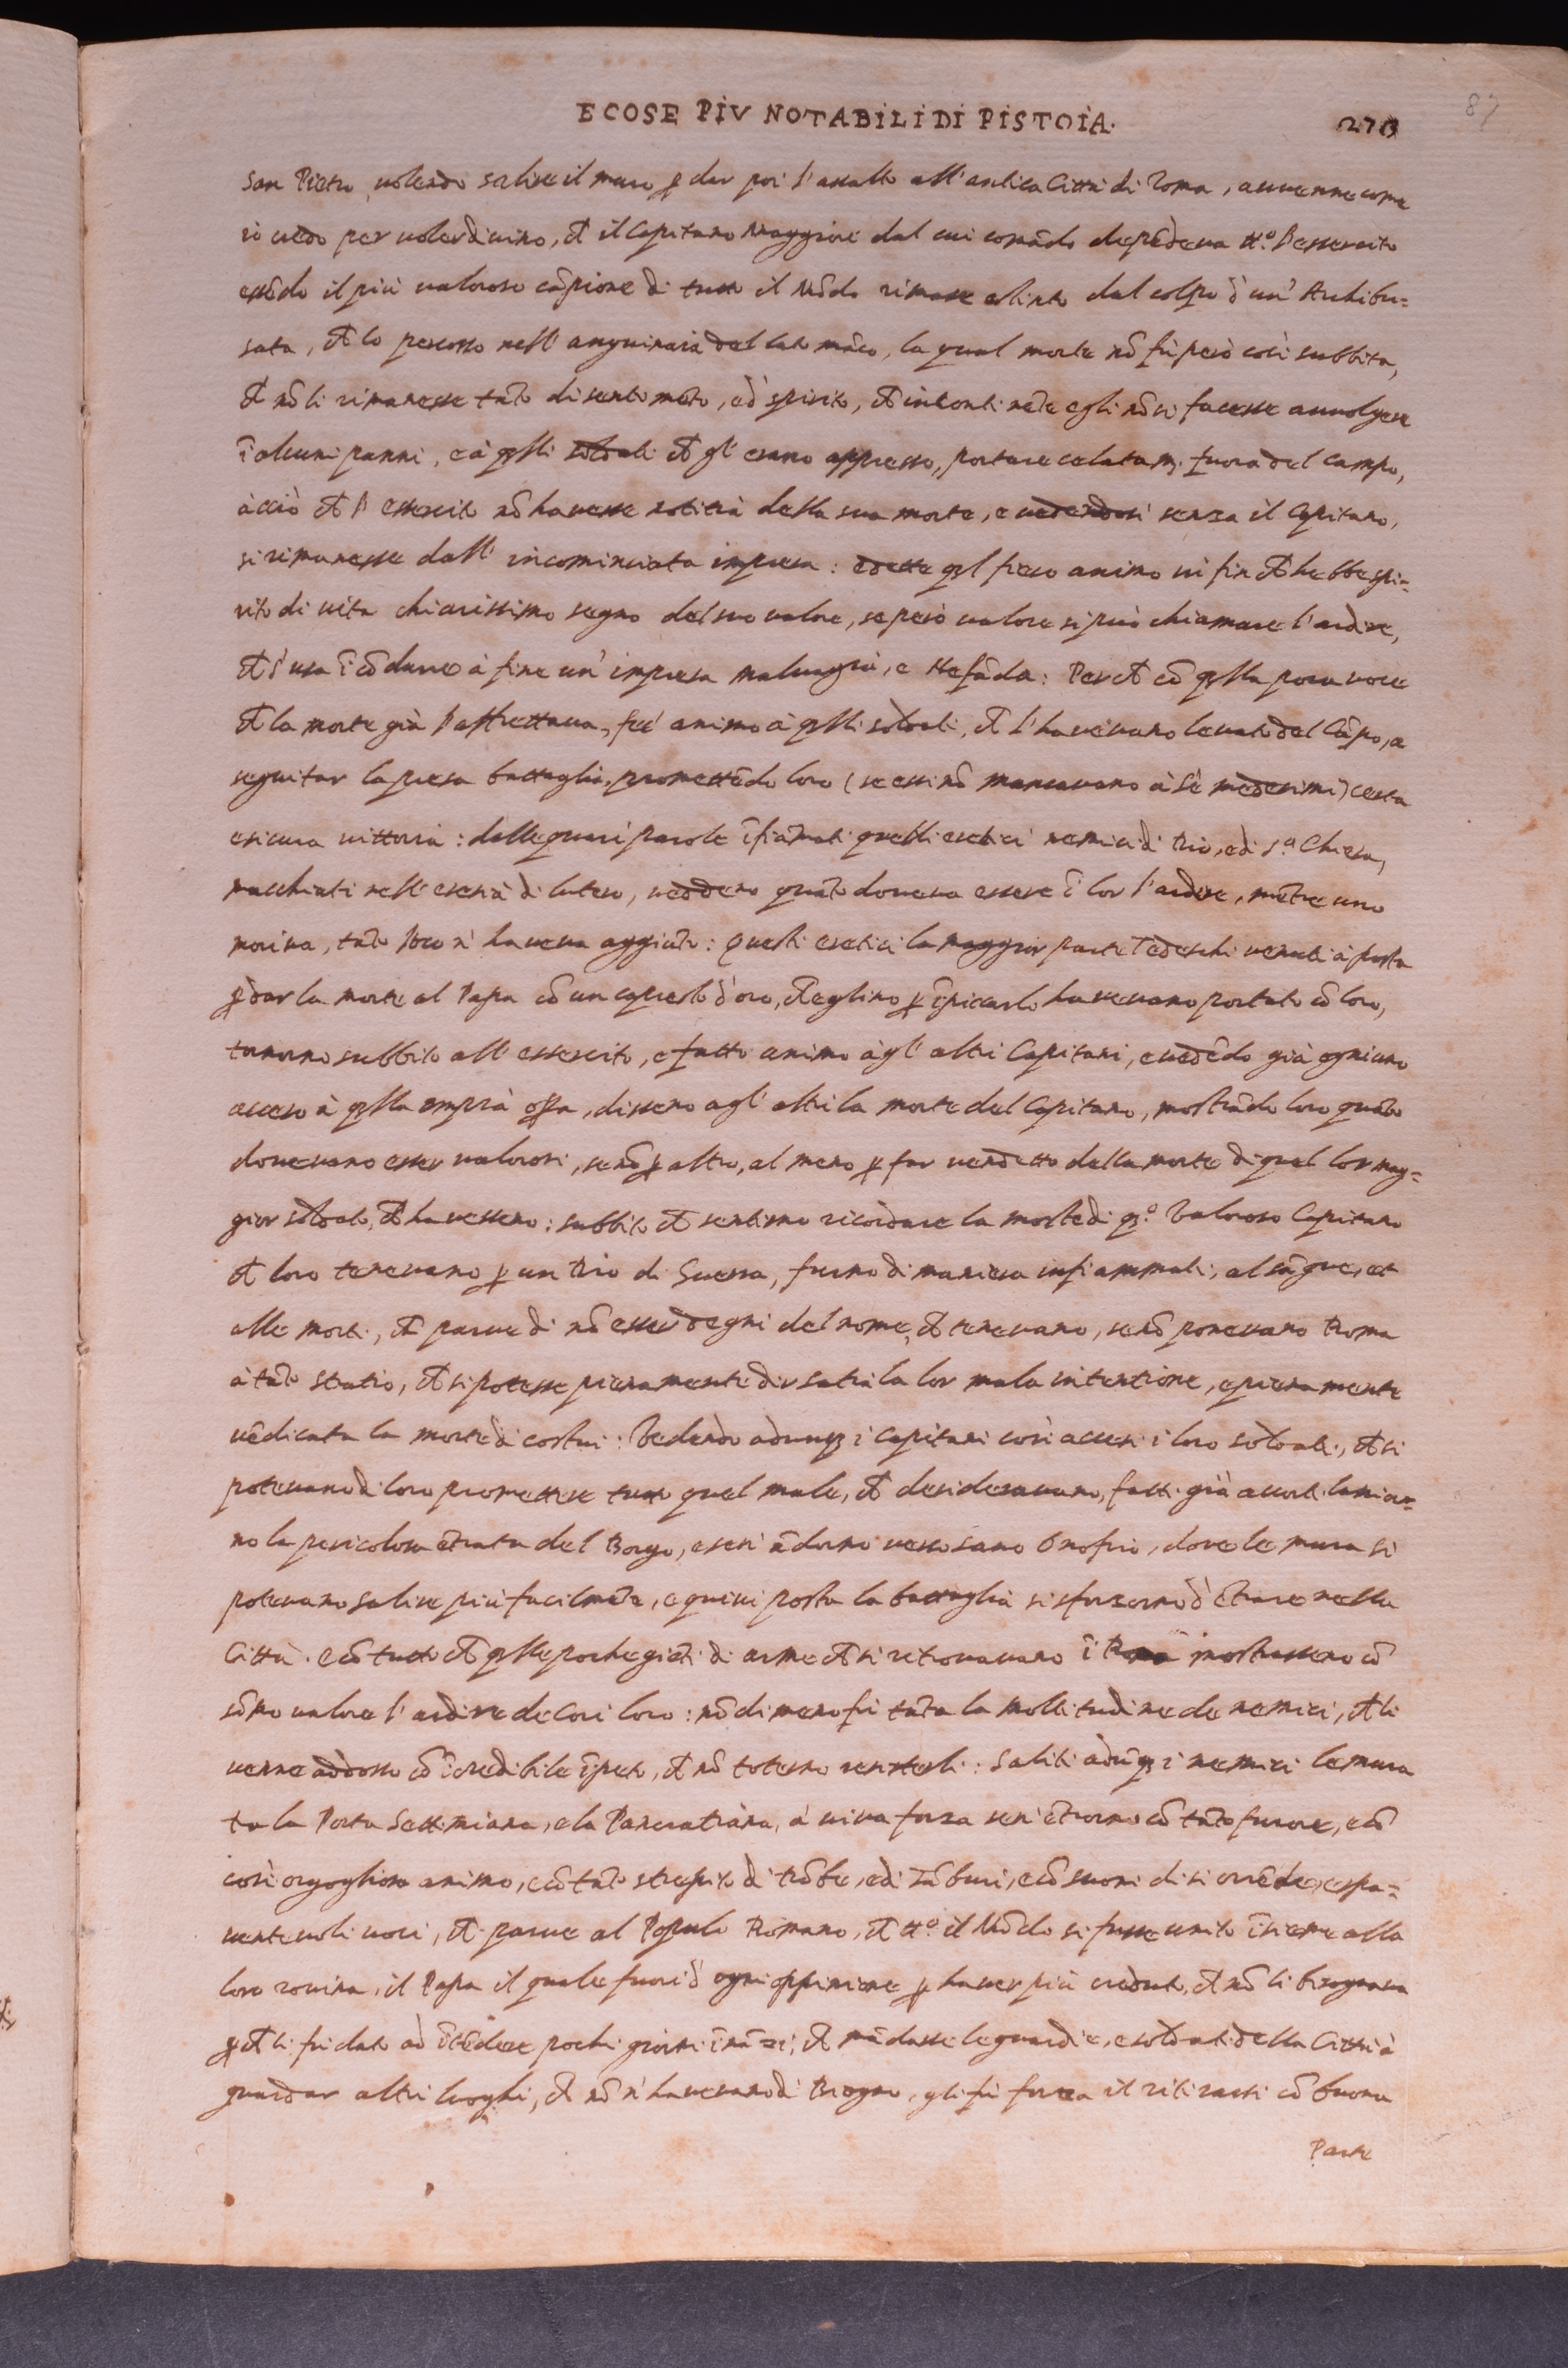 E COSE PIV NOTABILI DI PISTOIA. 270
87
San Pietro, volendo salire il muro ꝑ dar poi l'assalto all'antica Città di Roma, auvenne come
io credo per voler divino, ch il Capitano Maggiore dal cui comãdo depẽdeva tt.º l'essercito
essẽdo il più valoroso cãpione di tutto il Mõdo rimase estinto dal colpo d'un' Archibu=
sata, ch lo percosse nell'anguinaia del lato mãco, la qual morte nõ fù però così subbita,
ch nõ li rimanesse tãto di sentimẽto, e di spirito, ch incontinẽte egli nõ si facesse auvolgere
ĩ alcuni panni, e à qlli soldati ch gl'erano appresso, portare celatam. fuora del campo,
acciò ch l'essercito nõ havesse notitià della sua morte, e vedendosi senza il Capitano,
si rimanesse dall'incominciata impresa: e dette ql fiero animo in fin ch hebbe spi=
rito di vita chiarissimo segno del suo valore, se però valore si può chiamare l'ardire,
ch s'usa ĩ cõdurre à fine un'impresa malvagià, e nefãda: Per ch cõ qlla poca voce
ch la morte già l'affrettava, feć animo à qlli soldati, ch l'havevano levato del Cãpo, a
seguitar la presa battaglia, promettẽdo loro (se essi nõ mancavano à sè medesimi) certa
e sicura vittoria: dalle quai parole ĩfiãmati quelli eretici nemici di Dio, e di S.ª Chiesa,
macchiati nell'eresià di lutero, veddero quãto doveva essere ĩ lor l'ardire, mẽtre uno
moriva, tãto loco n'haveva aggiuto: questi eretici la maggior parte Tedeschi venuti à posta
ꝑ dar la morte al Papa cõ un capresto d'oro, ch eglino ꝑ ĩpiccarlo havevano portato cõ loro,
tornorno subbito all'essercito, e fatto animo àgl'altri Capitani, e vedẽdo già ogniuno
acceso à qlla empia opa, dissero agl'altri la morte del Capitano, mostrãdo loro quãto
dovevano esser valorosi, se nõ ꝑ altro, al meno ꝑ far vendetta della morte di quel lor mag=
gior soldato, ch havessero: subbito ch sentirno ricordare la morte di q.º Valoroso Capitano
ch loro tenevano ꝑ un Dio di Guerra, furno di maniera infiammati, al sãgue, et
alle morti, ch parve di nõ esser degni del nome, ch tenevano, se nõ ponevano Roma
à tãto stratio, ch si potesse pienamente dir satia la lor mala intentione, e pienamente
vẽdicata la morte di costui: Vedendo adunq i Capitani così accesi i loro soldati, ch si
potevano di loro promettere tutto quel male, ch desideravano, fatti già accorti lascior=
no la pericolosa ẽtrata del Borgo, e se n'ãdorno verso santo Onofrio, dove le mura si
potevano salire più facilmẽte, e quivi posta la battaglia si sforzorno d'ẽtrare nella
Città. E cõ tutto ch qlle poche gẽti di arme ch si retrovavano ĩ Roma mostrassero cõ
sõmo valore l'ardire de cori loro: nõ dimeno fù tãta la moltitudine de nemici, ch li
venne addosso cõ ĩcredibile ĩpeto, ch nõ poterno resisterli: Saliti adũq i nemici le mura
tra la Porta Settimiana, e la Pancratiana, à viva forza sen'ẽtrorno cõ tãto furore, e cõ
così orgoglioso animo, e cõ tãto strepito di trõbe, e di tãburi, e cõ suoni di sì orrẽde, e spa=
ventevoli voci, ch parve al Popolo Romano, ch tt.º il Mõdo si fusse unito ĩsieme alla
loro rovina, il Papa il quale fuori d'ogni oppinione ꝑ haver più creduto, ch nõ li bisognava
ꝑch li fù dato ad ĩtẽdere pochi giorni inãzi, ch mãdasse le guardie, e soldati della Città à
guardar altri luoghi, ch nõ n'havevano di Bisogno, gli fù forza il ritirarsi cõ buona
Parte